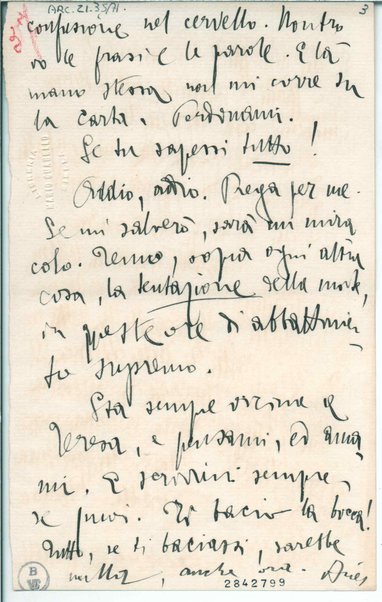 ARC.21.35/1.
3
confusione nel cervello. Non tro
vo le frasi e le parole. E la
mano stessa non mi corre su
la carta. Perdonami.
Se tu sapessi tutto!
Addio, addio. Prega per me.
Se mi salverò, sarà un mira
colo. Temo, sopra ogni altra
cosa, la tentazione della morte,
in queste ore di abbattimen
to supremo.
Sta sempre vicina a
Teresa, e pensami, ed ama
mi. E scrivimi sempre,
se puoi. Ti bacio la bocca!
Tutto, se ti baciassi, sarebbe
nulla, anche ora.
2842799